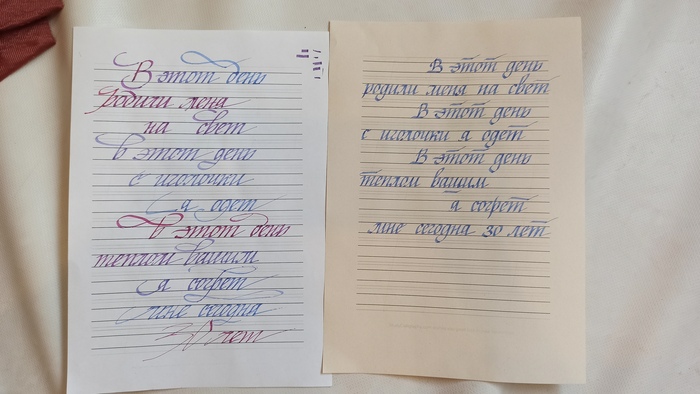 В этот день
родили меня
на свет
в этот день
с иголочки
я одет
в этот день
теплом вашим
я согрет
мне сегодня
30 лет
В этот день
родили меня на свет
В этот день
с иголочки я одет
В этот день
теплом вашим
я согрет
мне сегодня 30 лет